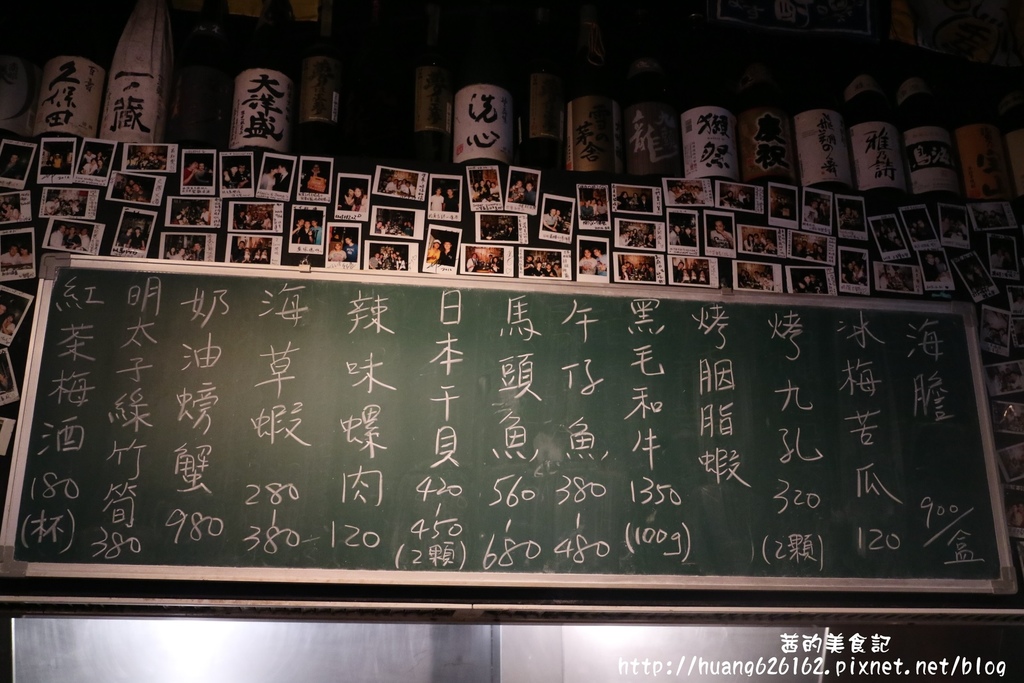 久保田
一ノ蔵
大洋盛
洗心
獺祭
雅山流
鳥海山
海膽 900/盒
冰梅苦瓜 120
烤九孔 320 (2顆)
烤胭脂蝦
黑毛和牛 1350 (100g)
午仔魚 380-480
馬頭魚 560-680
日本干貝 420-450 (2顆)
辣味螺肉 120
海草蝦 280-380
奶油螃蟹 980
明太子綠竹筍 380
紅茶梅酒 180 (杯)
茜的美食記
http://huang626162.pixnet.net/blog